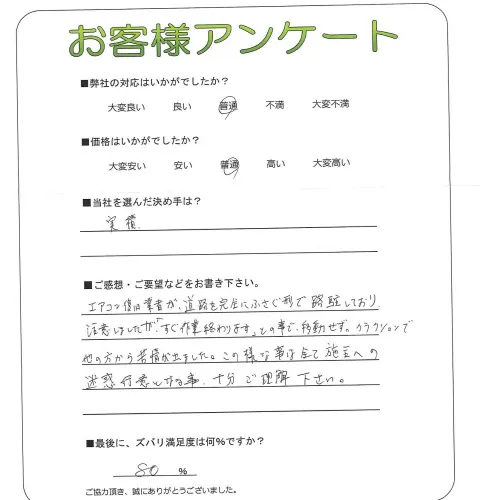 お客様アンケート
■弊社の対応はいかがでしたか？
大変良い 良い 普通 不満 大変不満
■価格はいかがでしたか？
大変安い 安い 普通 高い 大変高い
■当社を選んだ決め手は？
実積
■ご感想・ご要望などをお書き下さい。
エアコン復旧業者が、道路を完全にふさぐ形で路駐しており、
注意しましたが、「すぐ作業終わります」との事で、移動せず。クラクションで
他の方から苦情が出ました。この様な事は全て施主への
迷惑行為となる事、十分ご理解下さい。
■最後に、ズバリ満足度は何%ですか？
80 %
ご協力頂き、誠にありがとうございました。